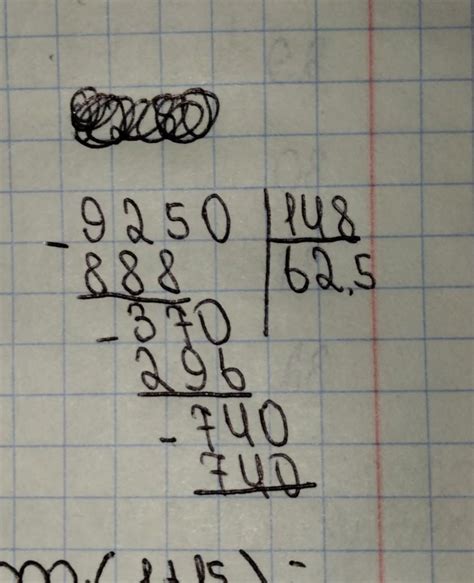 - 9250 | 148
888 | 62,5
- 370
296
- 740
740